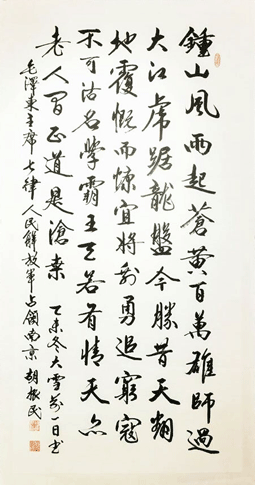 鍾山風雨起蒼黃百萬雄師過
大江虎踞龍盤今勝昔天翻
地覆慨而慷宜將剩勇追窮寇
不可沽名學霸王天若有情天亦
老人間正道是滄桑 乙未冬大雪前一日書
毛澤東主席七律人民解放軍占領南京 胡振民